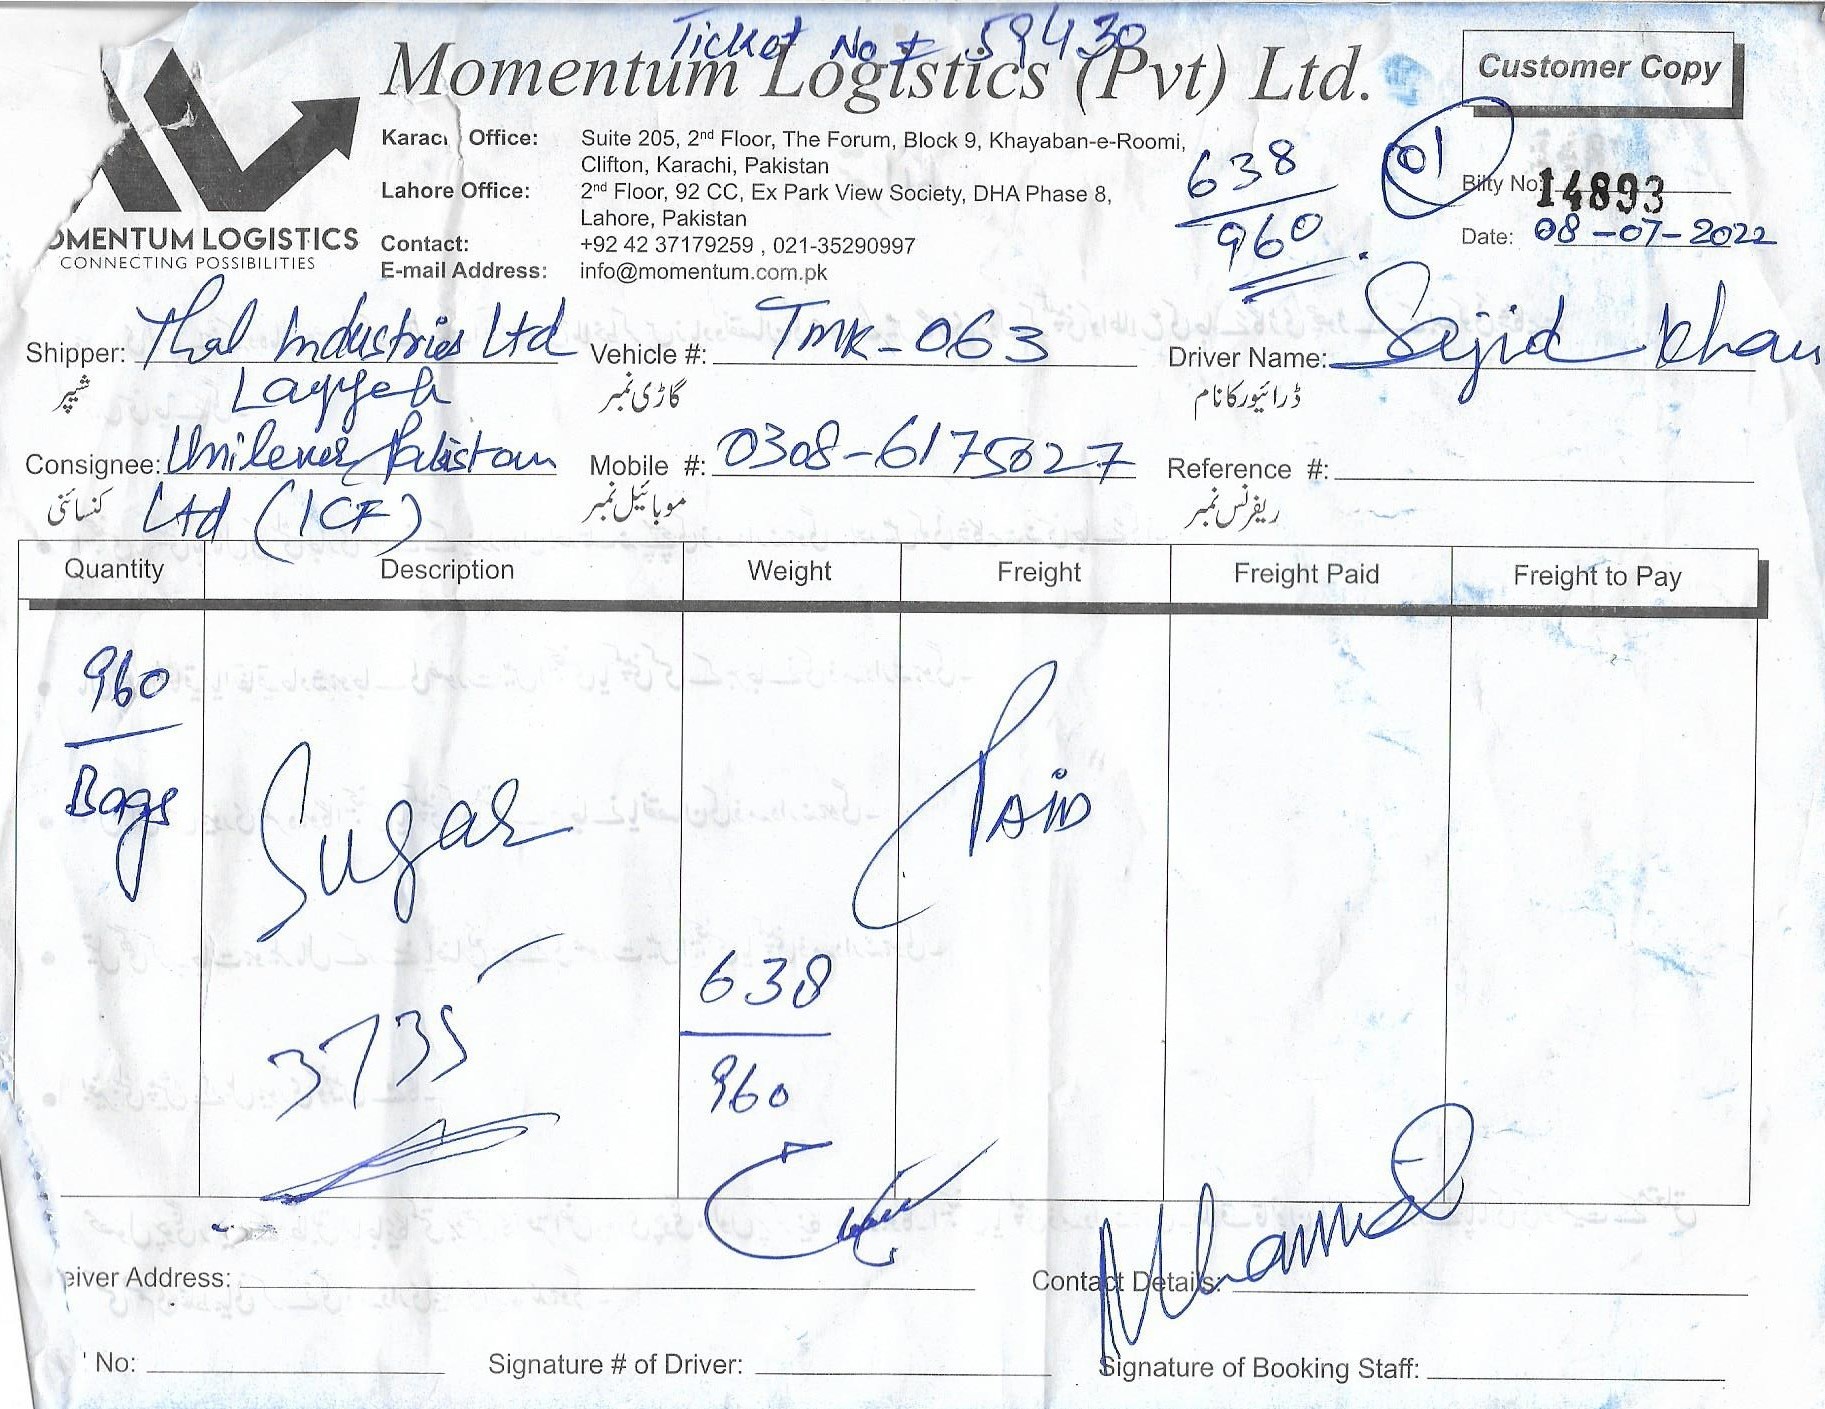 Ticket No # 59430
Momentum Logistics (Pvt) Ltd.
Customer Copy
Karachi Office: Suite 205, 2nd Floor, The Forum, Block 9, Khayaban-e-Roomi,
Clifton, Karachi, Pakistan
Lahore Office: 2nd Floor, 92 CC, Ex Park View Society, DHA Phase 8,
Lahore, Pakistan
Contact: +92 42 37179259 , 021-35290997
E-mail Address: info@momentum.com.pk
OMENTUM LOGISTICS
CONNECTING POSSIBILITIES
638
960
01
Bilty No: 14893
Date: 08-07-2022
Shipper: Thal Industries Ltd Vehicle #: TMK-063 Driver Name: Sajid Khan
شیپر Layyah گاڑی نمبر ڈرائیور کا نام
Consignee: Unilever Pakistan Mobile #: 0308-6175027 Reference #:
کنسائنی Ltd (ICF) موبائیل نمبر ریفرنس نمبر
Quantity Description Weight Freight Freight Paid Freight to Pay
960
Bags
Sugar
PAID
3735
638
960
eiver Address: Contact Details:
No: Signature # of Driver: Signature of Booking Staff: